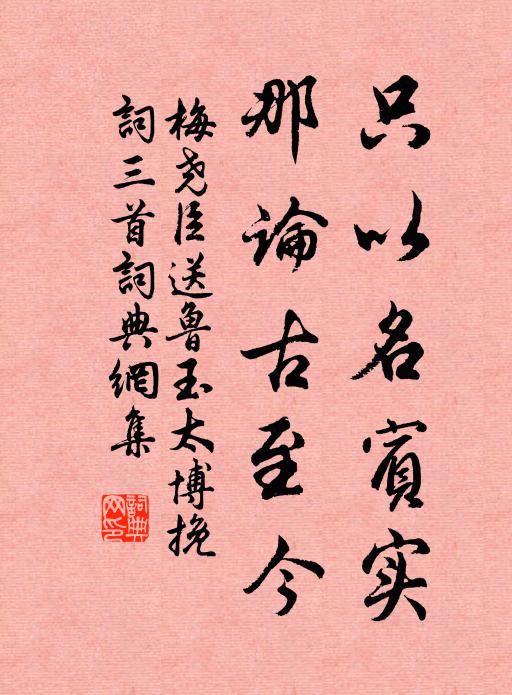 只以名賓实
那論古至今
梅尧臣送魯玉太博挽
詞三首詞典網集
詞典
网印